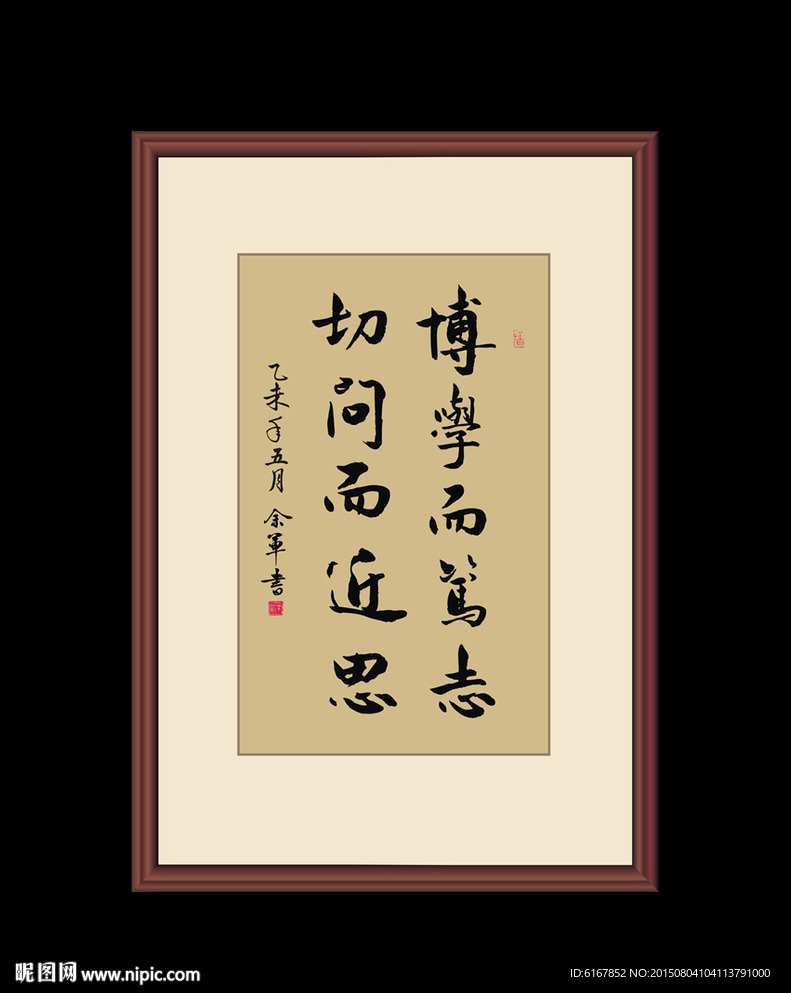 博學而篤志
切问而近思
乙未年五月 余軍書
昵图网 www.nipic.com
ID:6167852 NO:20150804104113791000